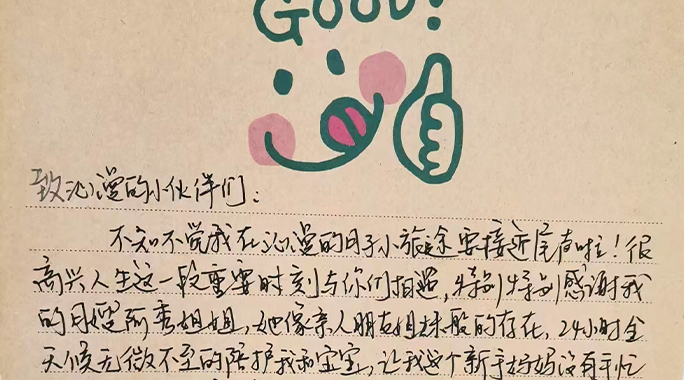 GOOD!
致沁漫的小伙伴们：
不知不觉我在沁漫的月子小旅途要接近尾声啦！很
高兴人生这一段重要时刻与你们相遇，特别特别感谢我
的月嫂秀姐姐，她像亲人朋友姐妹般的存在，24小时全
天候无微不至的陪护我和宝宝，让我这个新手妈妈没有手忙